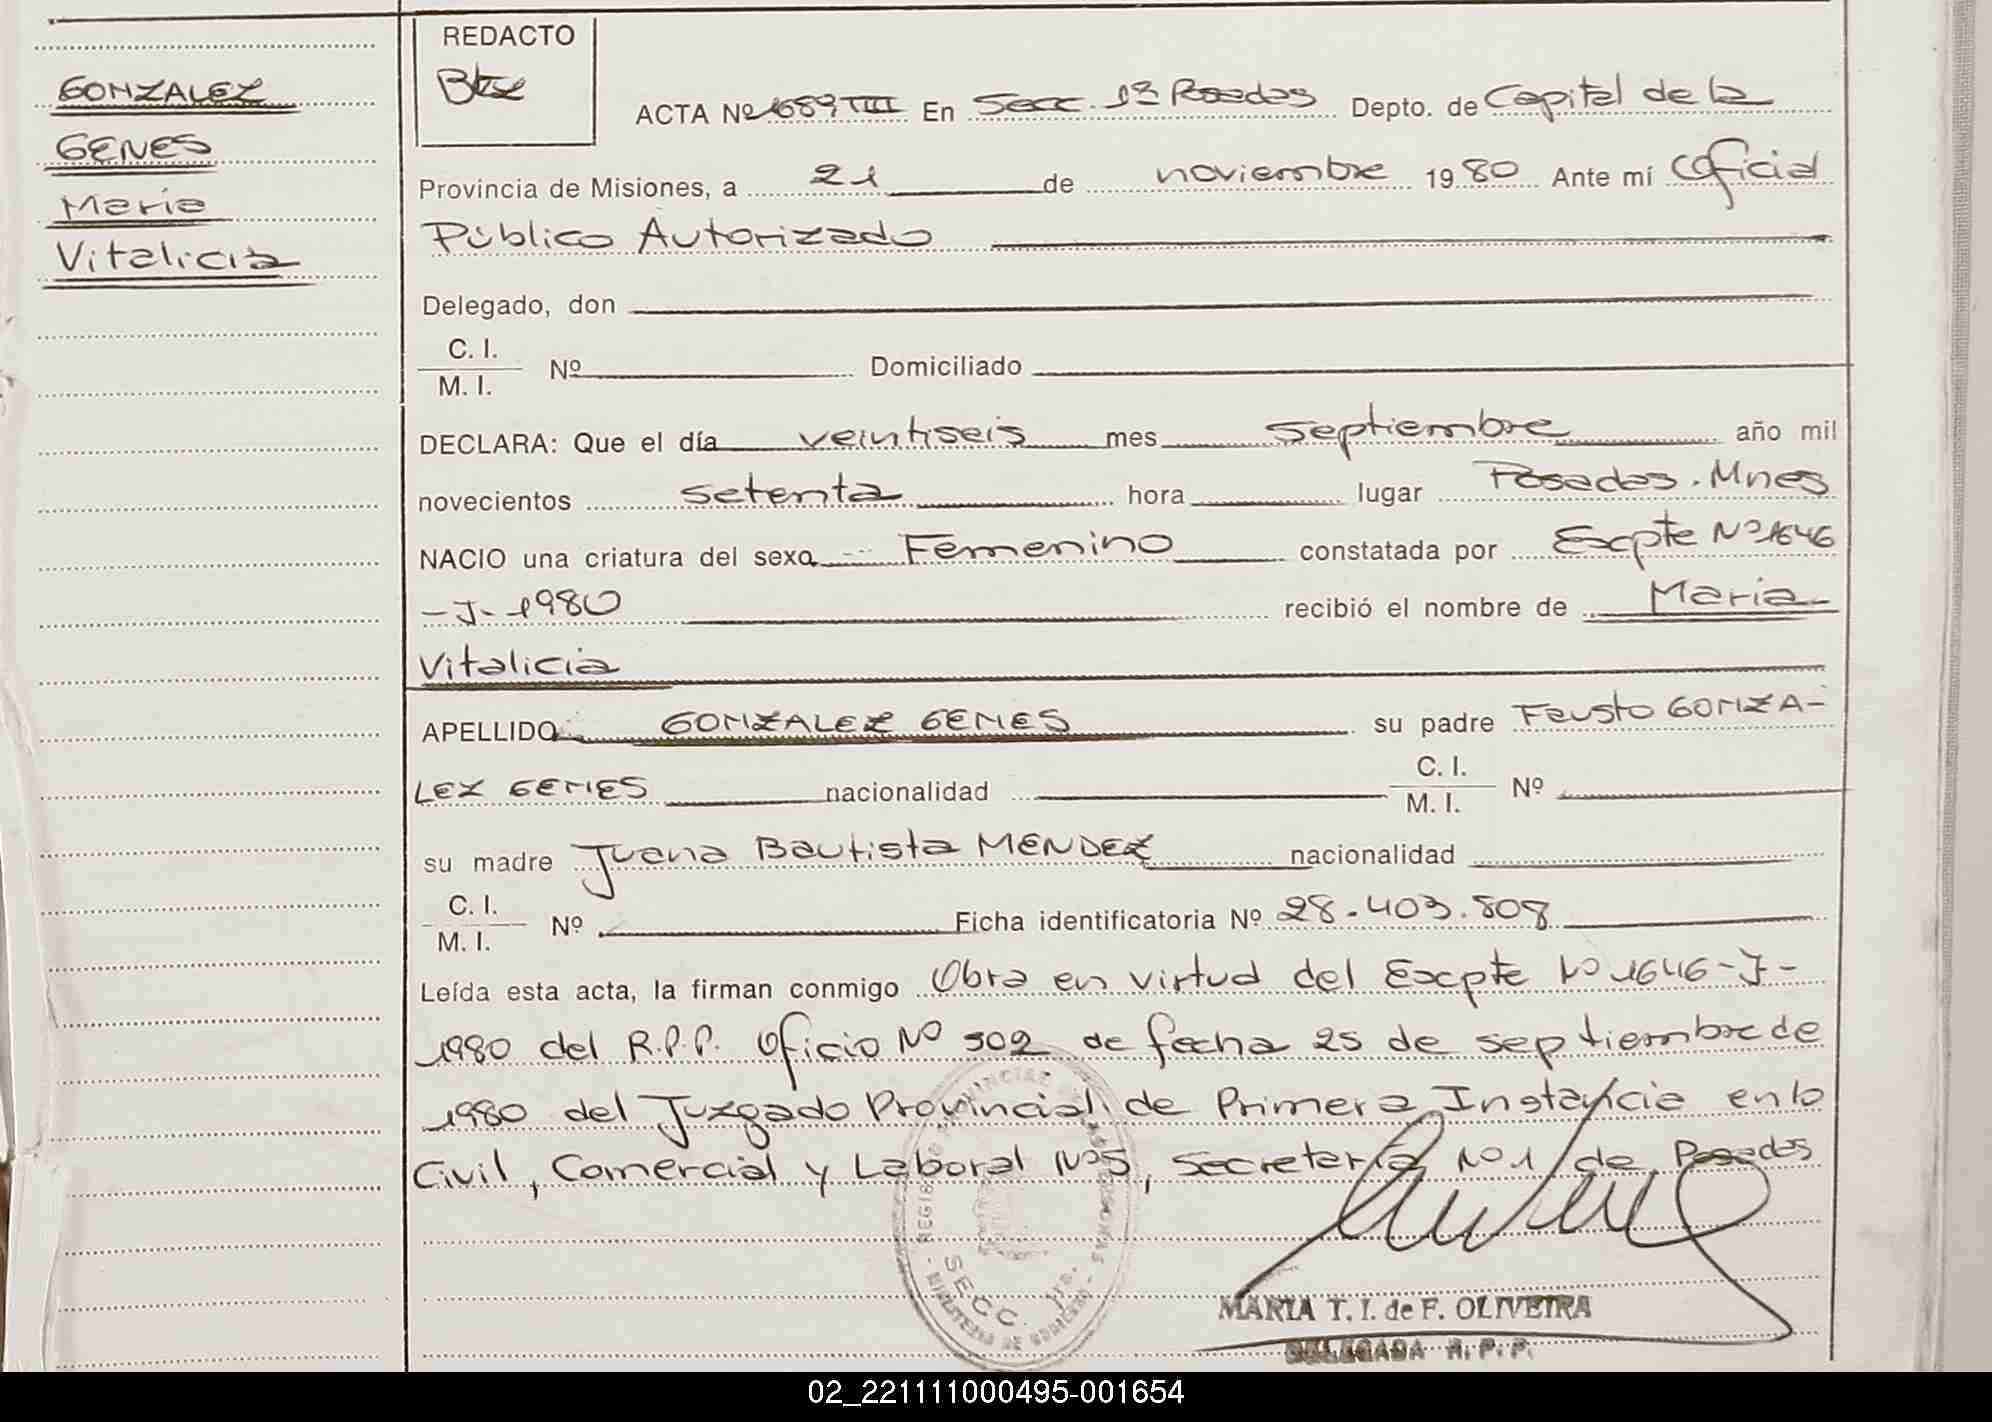 GONZALEZ
GENES
Maria
Vitalicia
REDACTO
ACTA Nº 1689 TIII En Secc. 1ª Posadas Depto. de Capital de la
Provincia de Misiones, a 21 de noviembre 1980 Ante mí Oficial
Público Autorizado
Delegado, don
C. I.
M. I. Nº Domiciliado
DECLARA: Que el día veintiseis mes septiembre año mil
novecientos setenta hora lugar Posadas. Mnes
NACIO una criatura del sexo Femenino constatada por Excpte Nº 1646
-J- 1980 recibió el nombre de Maria
Vitalicia
APELLIDO GONZALEZ GENES su padre Fausto GONZA-
LEZ GENES nacionalidad C. I. M. I. Nº
su madre Juana Bautista MENDEZ nacionalidad
C. I.
M. I. Nº Ficha identificatoria Nº 28.403.808
Leída esta acta, la firman conmigo Obra en virtud del Excpte Nº 1646-J-
1980 del R.P.P. Oficio Nº 502 de fecha 25 de septiembre de
1980 del Juzgado Provincial de Primera Instancia en lo
Civil, Comercial y Laboral Nº5, Secretería Nº1 de Posadas
MINISTERIO DE GOBIERNO
SECC. 1ra.
MARIA T. I. de F. OLIVEIRA
DELEGADA R. P. P.
02_221111000495-001654